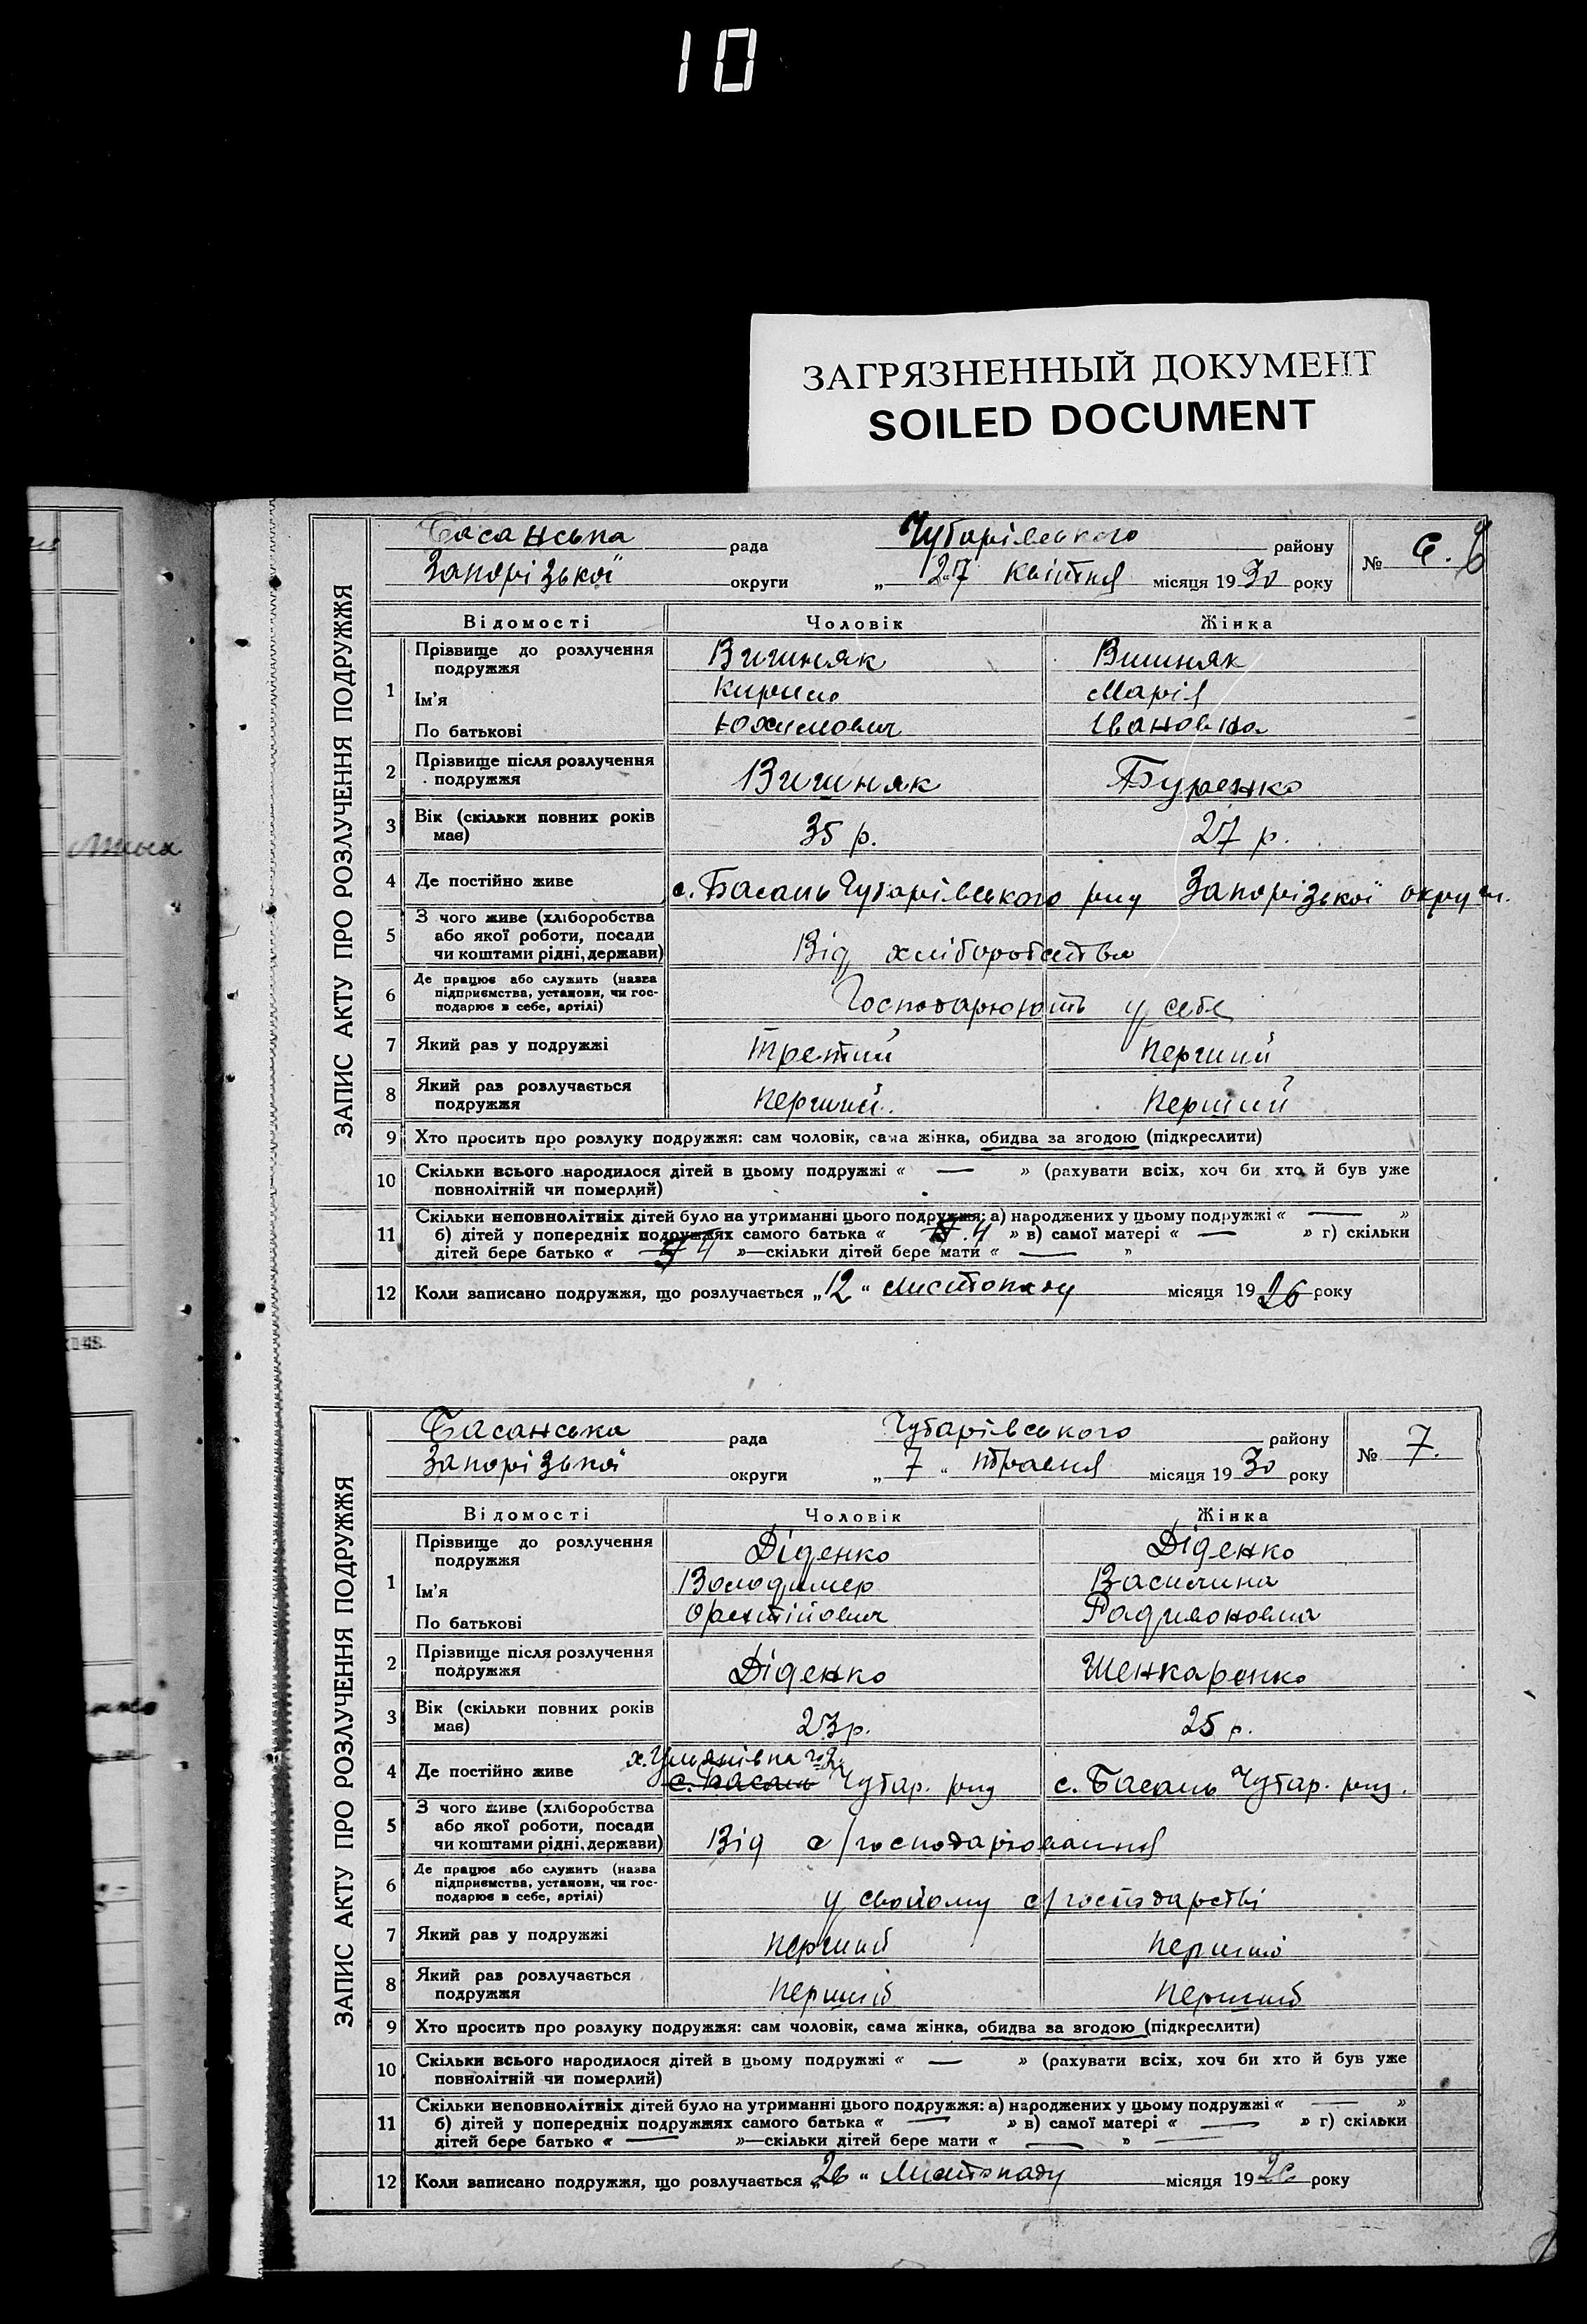 10
ЗАГРЯЗНЕННЫЙ ДОКУМЕНТ
SOILED DOCUMENT
ЗАПИС АКТУ ПРО РОЗЛУЧЕННЯ ПОДРУЖЖЯ
Басанська рада Чубарівського району
Запорізької округи „ 27 квітня місяця 1930 року № 6.
Відомості Чоловік Жінка
1 Прізвище до розлучення подружжя Вишняк Вишняк
Ім'я Кирило Марія
По батькові Юхимович Івановна
2 Прізвище після розлучення подружжя Вишняк Буренко
3 Вік (скільки повних років має) 35 р. 27 р.
4 Де постійно живе с. Басань Чубарівського р-ну Запорізької округи.
5 З чого живе (хліборобства або якої роботи, посади чи коштами рідні, держави) Від хліборобства
6 Де працює або служить (назва підприємства, установи, чи господарює в себе, артілі) Господарюють у себе
7 Який раз у подружжі третий перший
8 Який раз розлучається подружжя перший. перший
9 Хто просить про розлуку подружжя: сам чоловік, сама жінка, обидва за згодою (підкреслити)
10 Скільки всього народилося дітей в цьому подружжі « — » (рахувати всіх, хоч би хто й був уже
повнолітній чи померлий)
11 Скільки неповнолітніх дітей було на утриманні цього подружжя: а) народжених у цьому подружжі « — »
б) дітей у попередніх подружжях самого батька « 4 » в) самої матері « — » г) скільки
дітей бере батько « 4 »—скільки дітей бере мати « — »
12 Коли записано подружжя, що розлучається „12“ листопаду місяця 1926 року
ЗАПИС АКТУ ПРО РОЗЛУЧЕННЯ ПОДРУЖЖЯ
Басанська рада Чубарівського району
Запорізької округи „ 7 “ травня місяця 1930 року № 7.
Відомості Чоловік Жінка
1 Прізвище до розлучення подружжя Діденко Діденко
Ім'я Володимер Василина
По батькові Радивоновна
2 Прізвище після розлучення подружжя Діденко Шенкаренко
3 Вік (скільки повних років має) 23 р. 25 р.
4 Де постійно живе с. Басань Чубар. р-ну с. Басань Чубар. р-ну.
5 З чого живе (хліборобства або якої роботи, посади чи коштами рідні, держави) Від с/господарювання
6 Де працює або служить (назва підприємства, установи, чи господарює в себе, артілі) у свойому с/господарстві
7 Який раз у подружжі перший перший
8 Який раз розлучається подружжя перший перший
9 Хто просить про розлуку подружжя: сам чоловік, сама жінка, обидва за згодою (підкреслити)
10 Скільки всього народилося дітей в цьому подружжі « — » (рахувати всіх, хоч би хто й був уже
повнолітній чи померлий)
11 Скільки неповнолітніх дітей було на утриманні цього подружжя: а) народжених у цьому подружжі « — »
б) дітей у попередніх подружжях самого батька « — » в) самої матері « — » г) скільки
дітей бере батько « — »—скільки дітей бере мати « — »
12 Коли записано подружжя, що розлучається „26“ листопаду місяця 1926 року